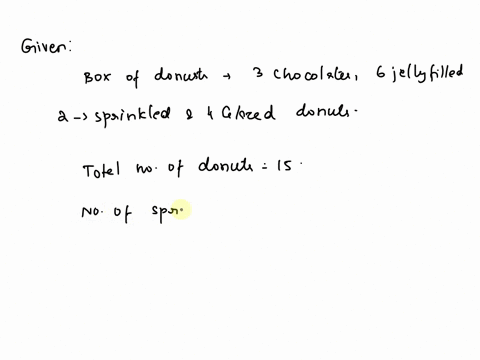 Given:
Box of donuts → 3 chocolates, 6 jelly filled
2 → sprinkled & 4 Glazed donuts.
Total no. of donuts = 15.
No. of spr